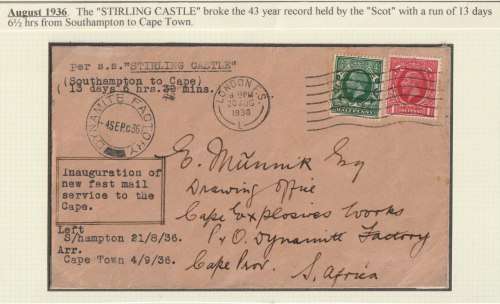 August 1936 The "STIRLING CASTLE" broke the 43 year record held by the "Scot" with a run of 13 days
6½ hrs from Southampton to Cape Town.
per s.s."STIRLING CASTLE"
(Southampton to Cape)
(13 days 6 hrs. mins.
LONDON F.S.
PM
20 AUG
1936
DYNAMITE FACTORY
4 SEP 36
HALFPENNY
E. Munnik Esq
Drawing Office
Cape Explosives Works
P.O. Dynamite Factory
Cape Prov.
S. Africa
Inauguration of
new fast mail
service to the
Cape.
Left
S/hampton 21/8/36.
Arr.
Cape Town 4/9/36.